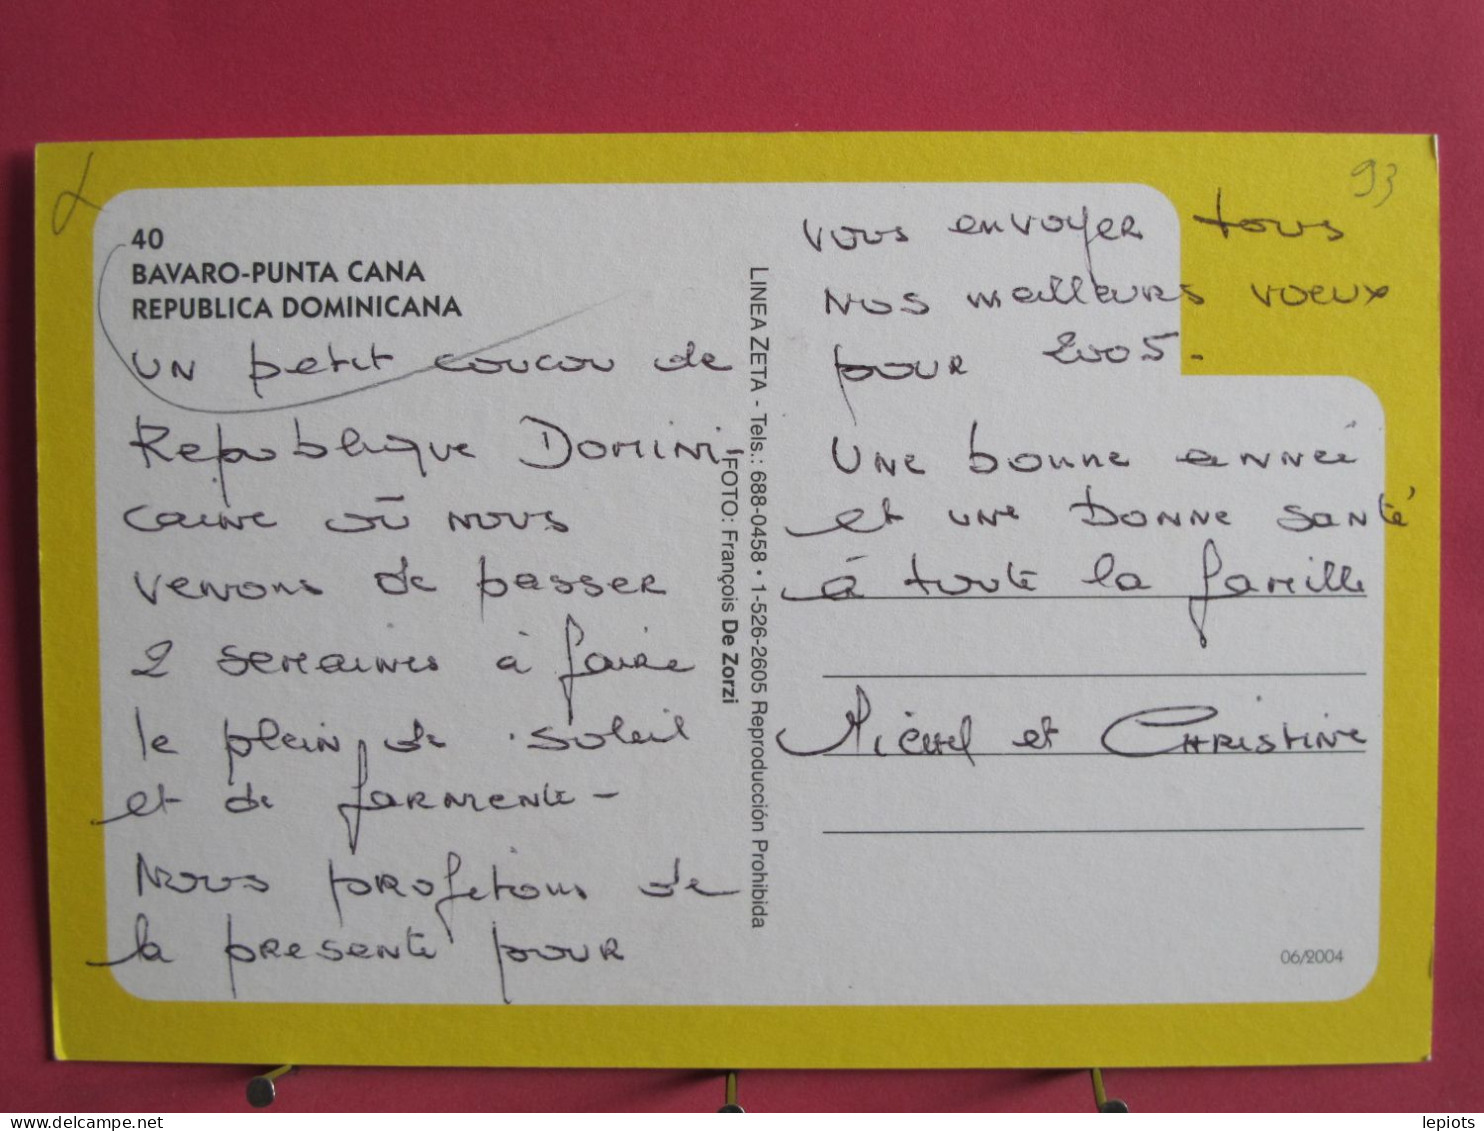 93
40
BAVARO-PUNTA CANA
REPUBLICA DOMINICANA
UN petit coucou de
Republique Domini-
caine où nous
venons de passer
2 semaines à faire
le plein de soleil
et de farniente -
Nous profitons de
la presente pour
LINEA ZETA - Tels.: 688-0458 • 1-526-2605 Reproducción Prohibida
FOTO: François De Zorzi
vous envoyer tous
nos meilleurs voeux
pour 2005.
Une bonne année
et une bonne santé
à toute la famille
Michel et Christine
06/2004
lepiots